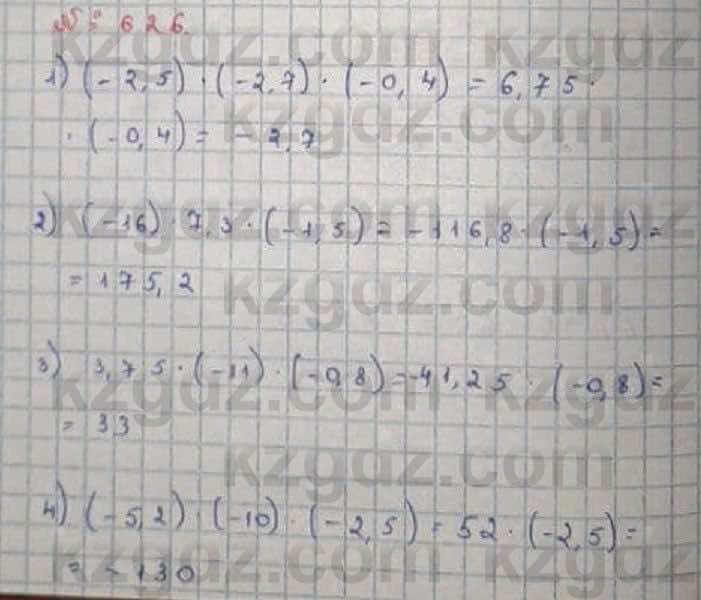 № 626.
1) (-2,5) · (-2,7) · (-0,4) = 6,75 ·
· (-0,4) = -2,7
2) (-16) · 7,3 · (-1,5) = -116,8 · (-1,5) =
= 175,2
3) 3,75 · (-11) · (-0,8) = -41,25 · (-0,8) =
= 33
4) (-5,2) · (-10) · (-2,5) = 52 · (-2,5) =
= -130
kzgdz.com
kzgdz.com
kzgdz.com
kzgdz.com
kzgdz.com
kzgdz.com
kzgdz.com
kzgdz.com
kzgdz.com
kzgdz.com
kzgdz.com
kzgdz.com